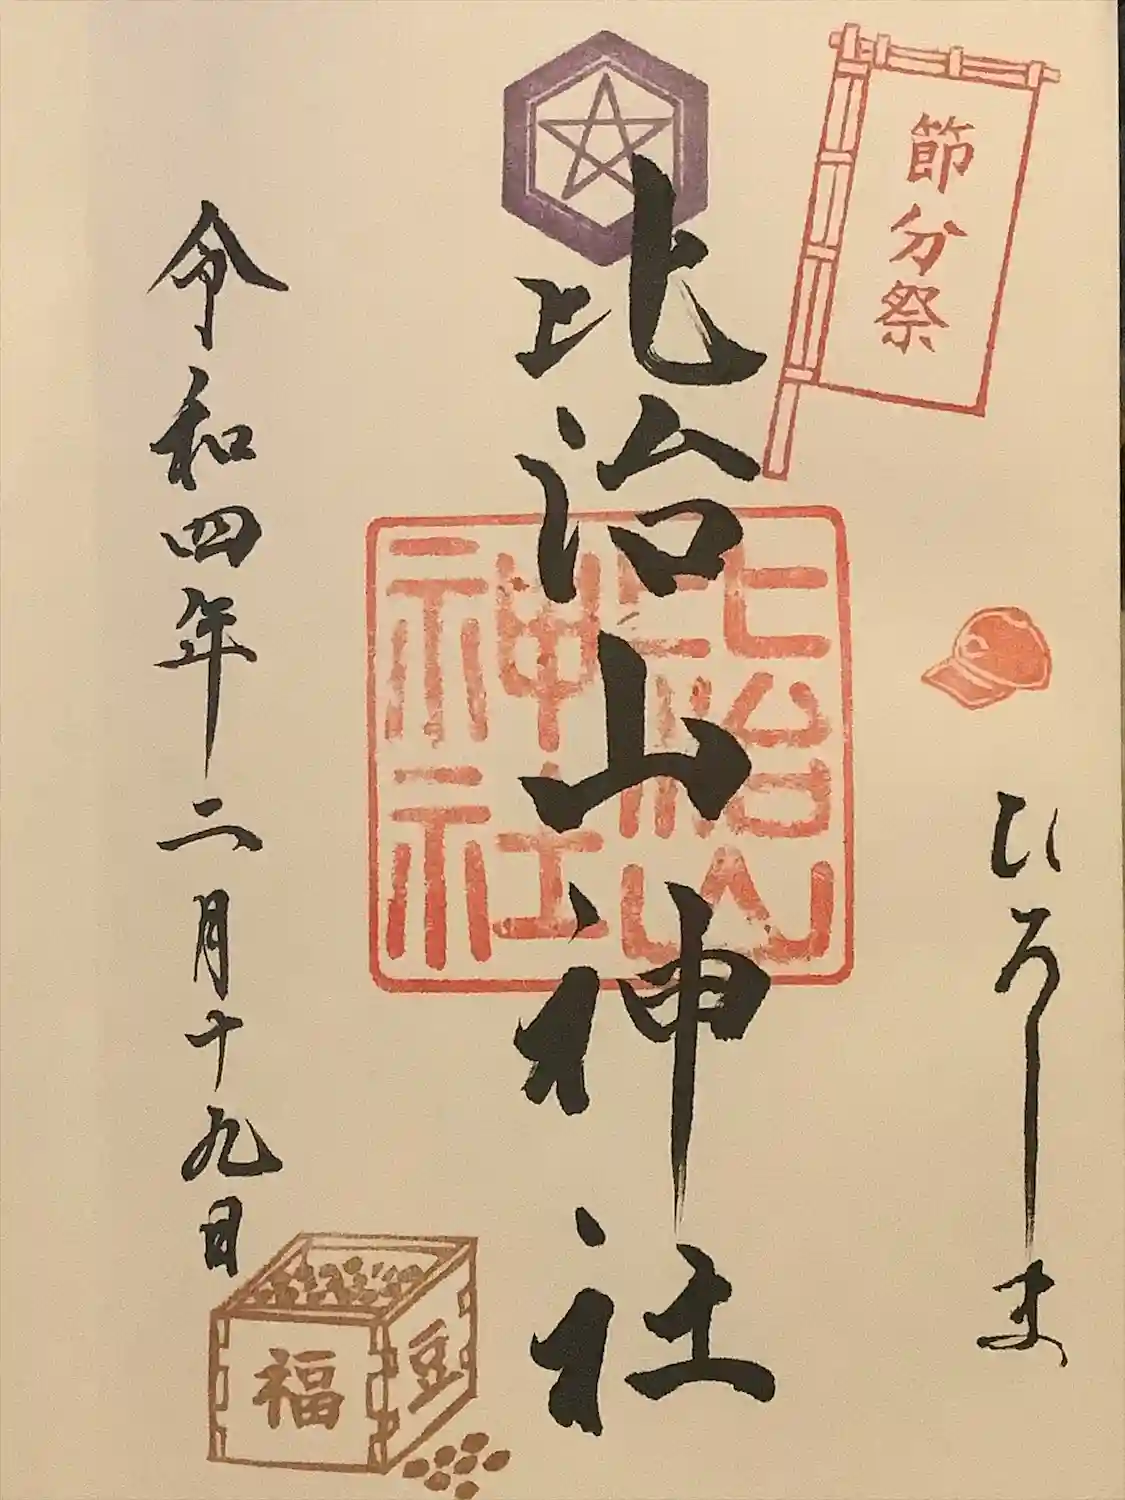 節分祭
ひろしま
比治山神社
比治山神社
令和四年二月十九日
福
豆